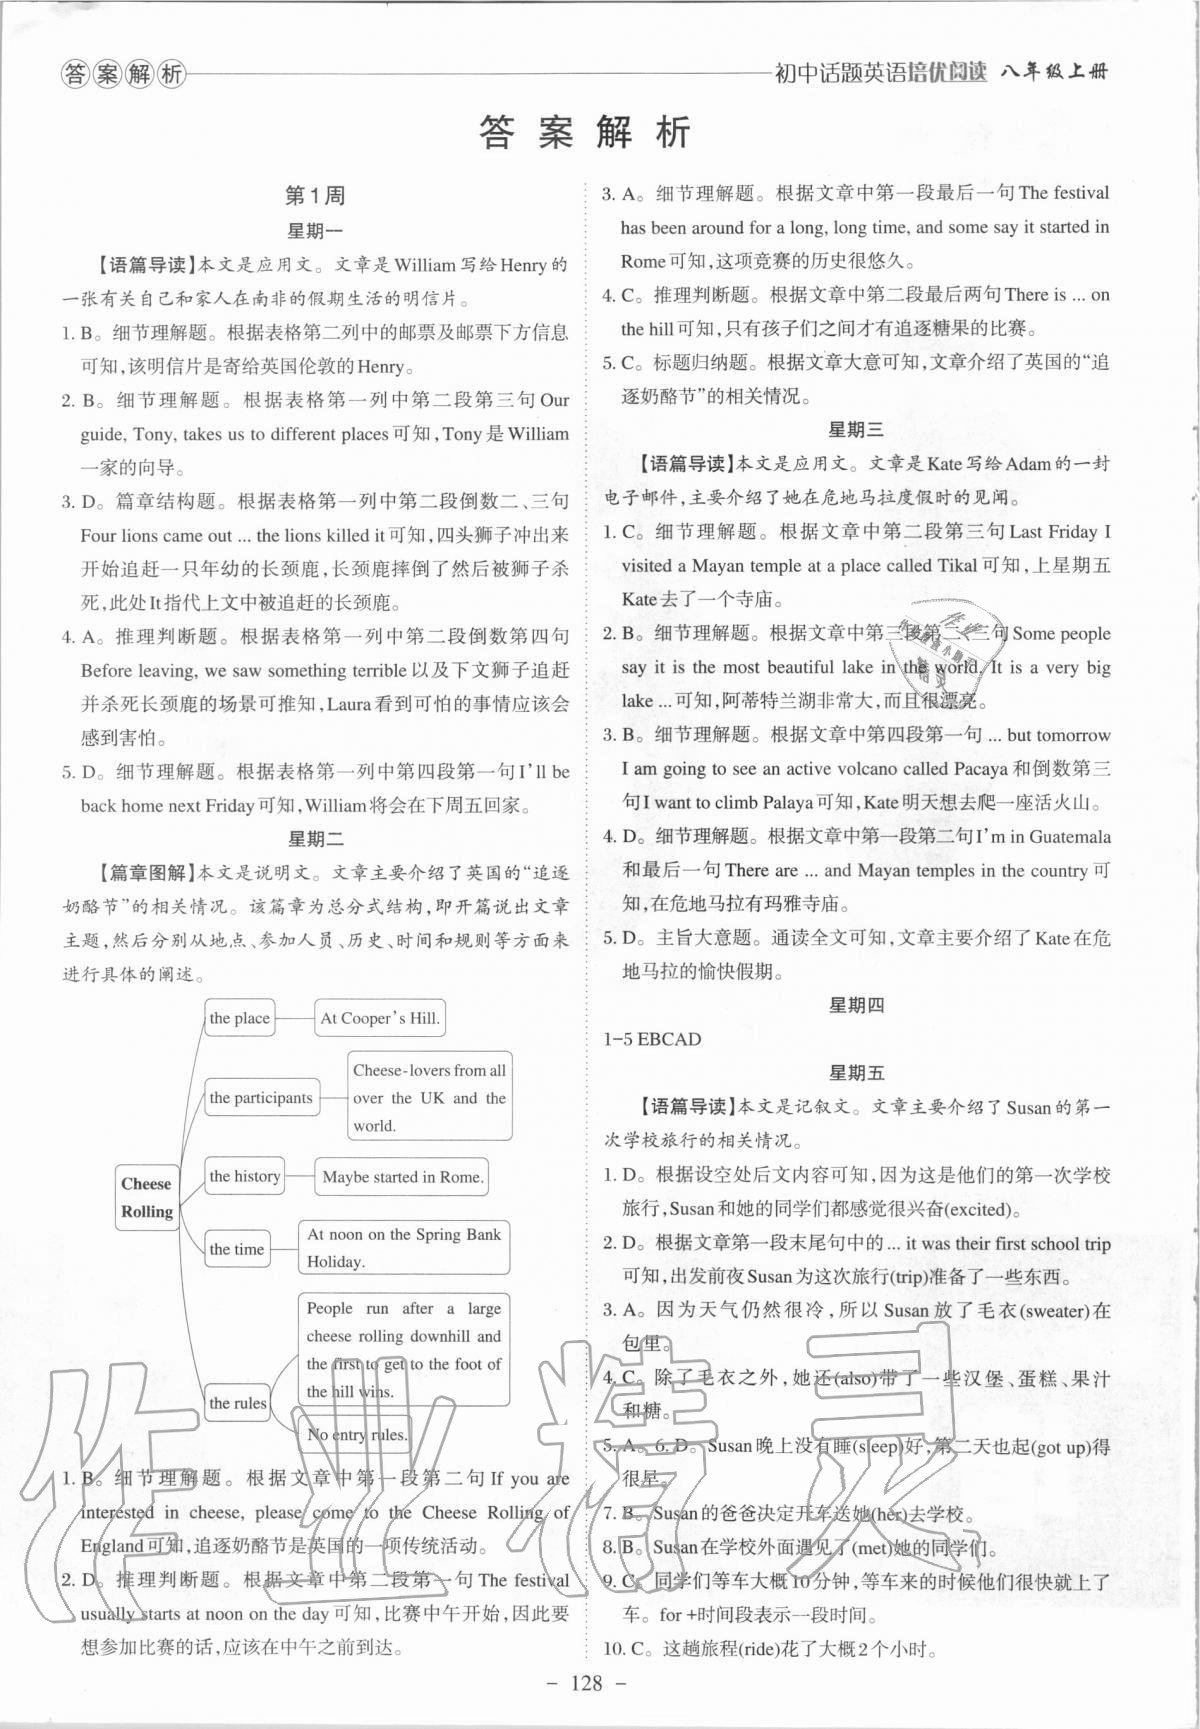 答案解析
初中话题英语培优阅读 八年级上册
答 案 解 析
第1周
星期一
【语篇导读】本文是应用文。文章是William写给Henry的
一张有关自己和家人在南非的假期生活的明信片。
1. B。细节理解题。根据表格第二列中的邮票及邮票下方信息
可知,该明信片是寄给英国伦敦的Henry。
2. B。细节理解题。根据表格第一列中第二段第三句Our
guide, Tony, takes us to different places可知,Tony是William
一家的向导。
3. D。篇章结构题。根据表格第一列中第二段倒数二、三句
Four lions came out ... the lions killed it可知,四头狮子冲出来
开始追赶一只年幼的长颈鹿,长颈鹿摔倒了然后被狮子杀
死,此处It指代上文中被追赶的长颈鹿。
4. A。推理判断题。根据表格第一列中第二段倒数第四句
Before leaving, we saw something terrible以及下文狮子追赶
并杀死长颈鹿的场景可推知,Laura看到可怕的事情应该会
感到害怕。
5. D。细节理解题。根据表格第一列中第四段第一句I'll be
back home next Friday可知,William将会在下周五回家。
星期二
【篇章图解】本文是说明文。文章主要介绍了英国的“追逐
奶酪节”的相关情况。该篇章为总分式结构,即开篇说出文章
主题,然后分别从地点、参加人员、历史、时间和规则等方面来
进行具体的阐述。
Cheese
Rolling
the place
At Cooper's Hill.
the participants
Cheese-lovers from all
over the UK and the
world.
the history
Maybe started in Rome.
the time
At noon on the Spring Bank
Holiday.
the rules
People run after a large
cheese rolling downhill and
the first to get to the foot of
the hill wins.
No entry rules.
1. B。细节理解题。根据文章中第一段第二句If you are
interested in cheese, please come to the Cheese Rolling of
England可知,追逐奶酪节是英国的一项传统活动。
2. D。推理判断题。根据文章中第二段第一句The festival
usually starts at noon on the day可知,比赛中午开始,因此要
想参加比赛的话,应该在中午之前到达。
3. A。细节理解题。根据文章中第一段最后一句The festival
has been around for a long, long time, and some say it started in
Rome可知,这项竞赛的历史很悠久。
4. C。推理判断题。根据文章中第二段最后两句There is ... on
the hill可知,只有孩子们之间才有追逐糖果的比赛。
5. C。标题归纳题。根据文章大意可知,文章介绍了英国的“追
逐奶酪节”的相关情况。
星期三
【语篇导读】本文是应用文。文章是Kate写给Adam的一封
电子邮件,主要介绍了她在危地马拉度假时的见闻。
1. C。细节理解题。根据文章中第二段第三句Last Friday I
visited a Mayan temple at a place called Tikal可知,上星期五
Kate去了一个寺庙。
2. B。细节理解题。根据文章中第三段第二、三句Some people
say it is the most beautiful lake in the world. It is a very big
lake ...可知,阿蒂特兰湖非常大,而且很漂亮。
3. B。细节理解题。根据文章中第四段第一句 ... but tomorrow
I am going to see an active volcano called Pacaya和倒数第三
句I want to climb Palaya可知,Kate明天想去爬一座活火山。
4. D。细节理解题。根据文章中第一段第二句I'm in Guatemala
和最后一句There are ... and Mayan temples in the country可
知,在危地马拉有玛雅寺庙。
5. D。主旨大意题。通读全文可知,文章主要介绍了Kate在危
地马拉的愉快假期。
星期四
1-5 EBCAD
星期五
【语篇导读】本文是记叙文。文章主要介绍了Susan的第一
次学校旅行的相关情况。
1. D。根据设空处后文内容可知,因为这是他们的第一次学校
旅行,Susan和她的同学们都感觉很兴奋(excited)。
2. D。根据文章第一段末尾句中的 ... it was their first school trip
可知,出发前夜Susan为这次旅行(trip)准备了一些东西。
3. A。因为天气仍然很冷,所以Susan放了毛衣(sweater)在
包里。
4. C。除了毛衣之外,她还(also)带了一些汉堡、蛋糕、果汁
和糖。
5. A。6. D。Susan晚上没有睡(sleep)好,第二天也起(got up)得
很早。
7. B。Susan的爸爸决定开车送她(her)去学校。
8. B。Susan在学校外面遇见了(met)她的同学们。
9. C。同学们等车大概10分钟,等车来的时候他们很快就上了
车。for +时间段表示一段时间。
10. C。这趟旅程(ride)花了大概2个小时。
- 128 -
作业精灵